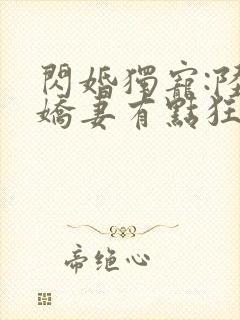 閃婚獨寵:陸
嬌妻有點狂
帝绝心